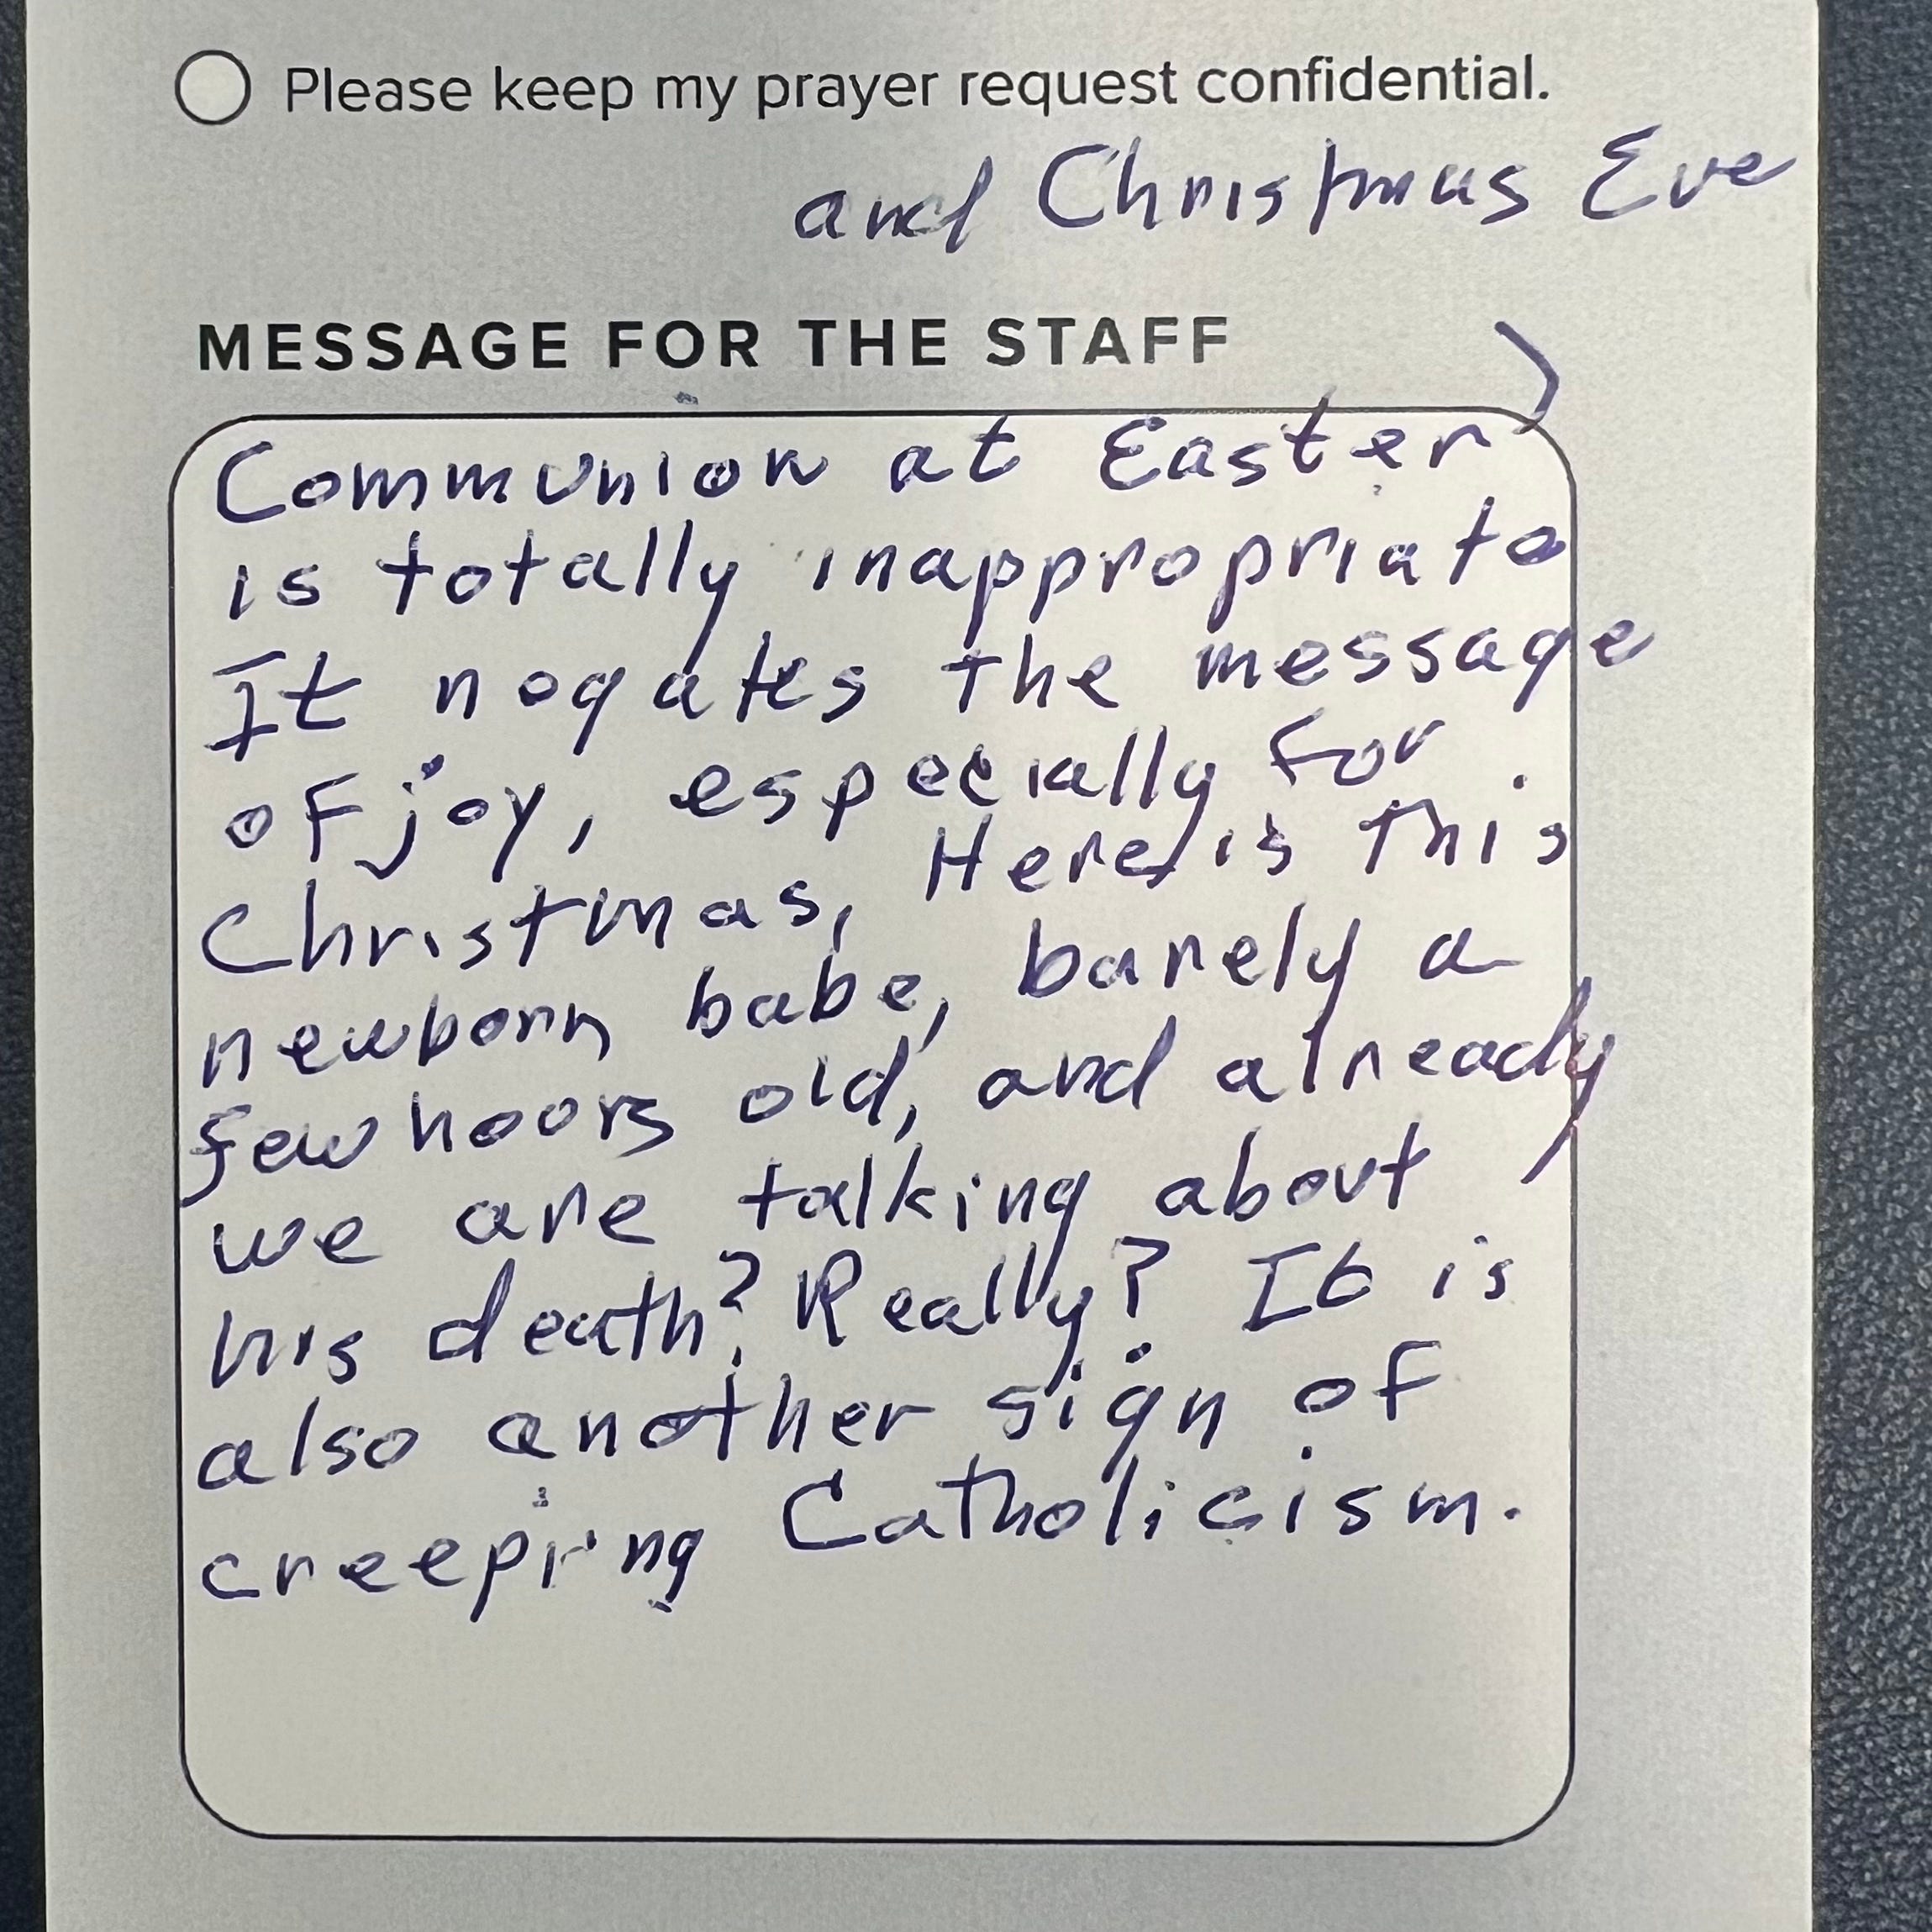 Please keep my prayer request confidential.
and Christmas Eve
MESSAGE FOR THE STAFF
Communion at Easter
is totally inappropriate
It negates the message
of joy, especially for
Christmas, Here is this
newborn babe, barely a
few hours old, and already
we are talking about
his death? Really? It is
also another sign of
creeping Catholicism.